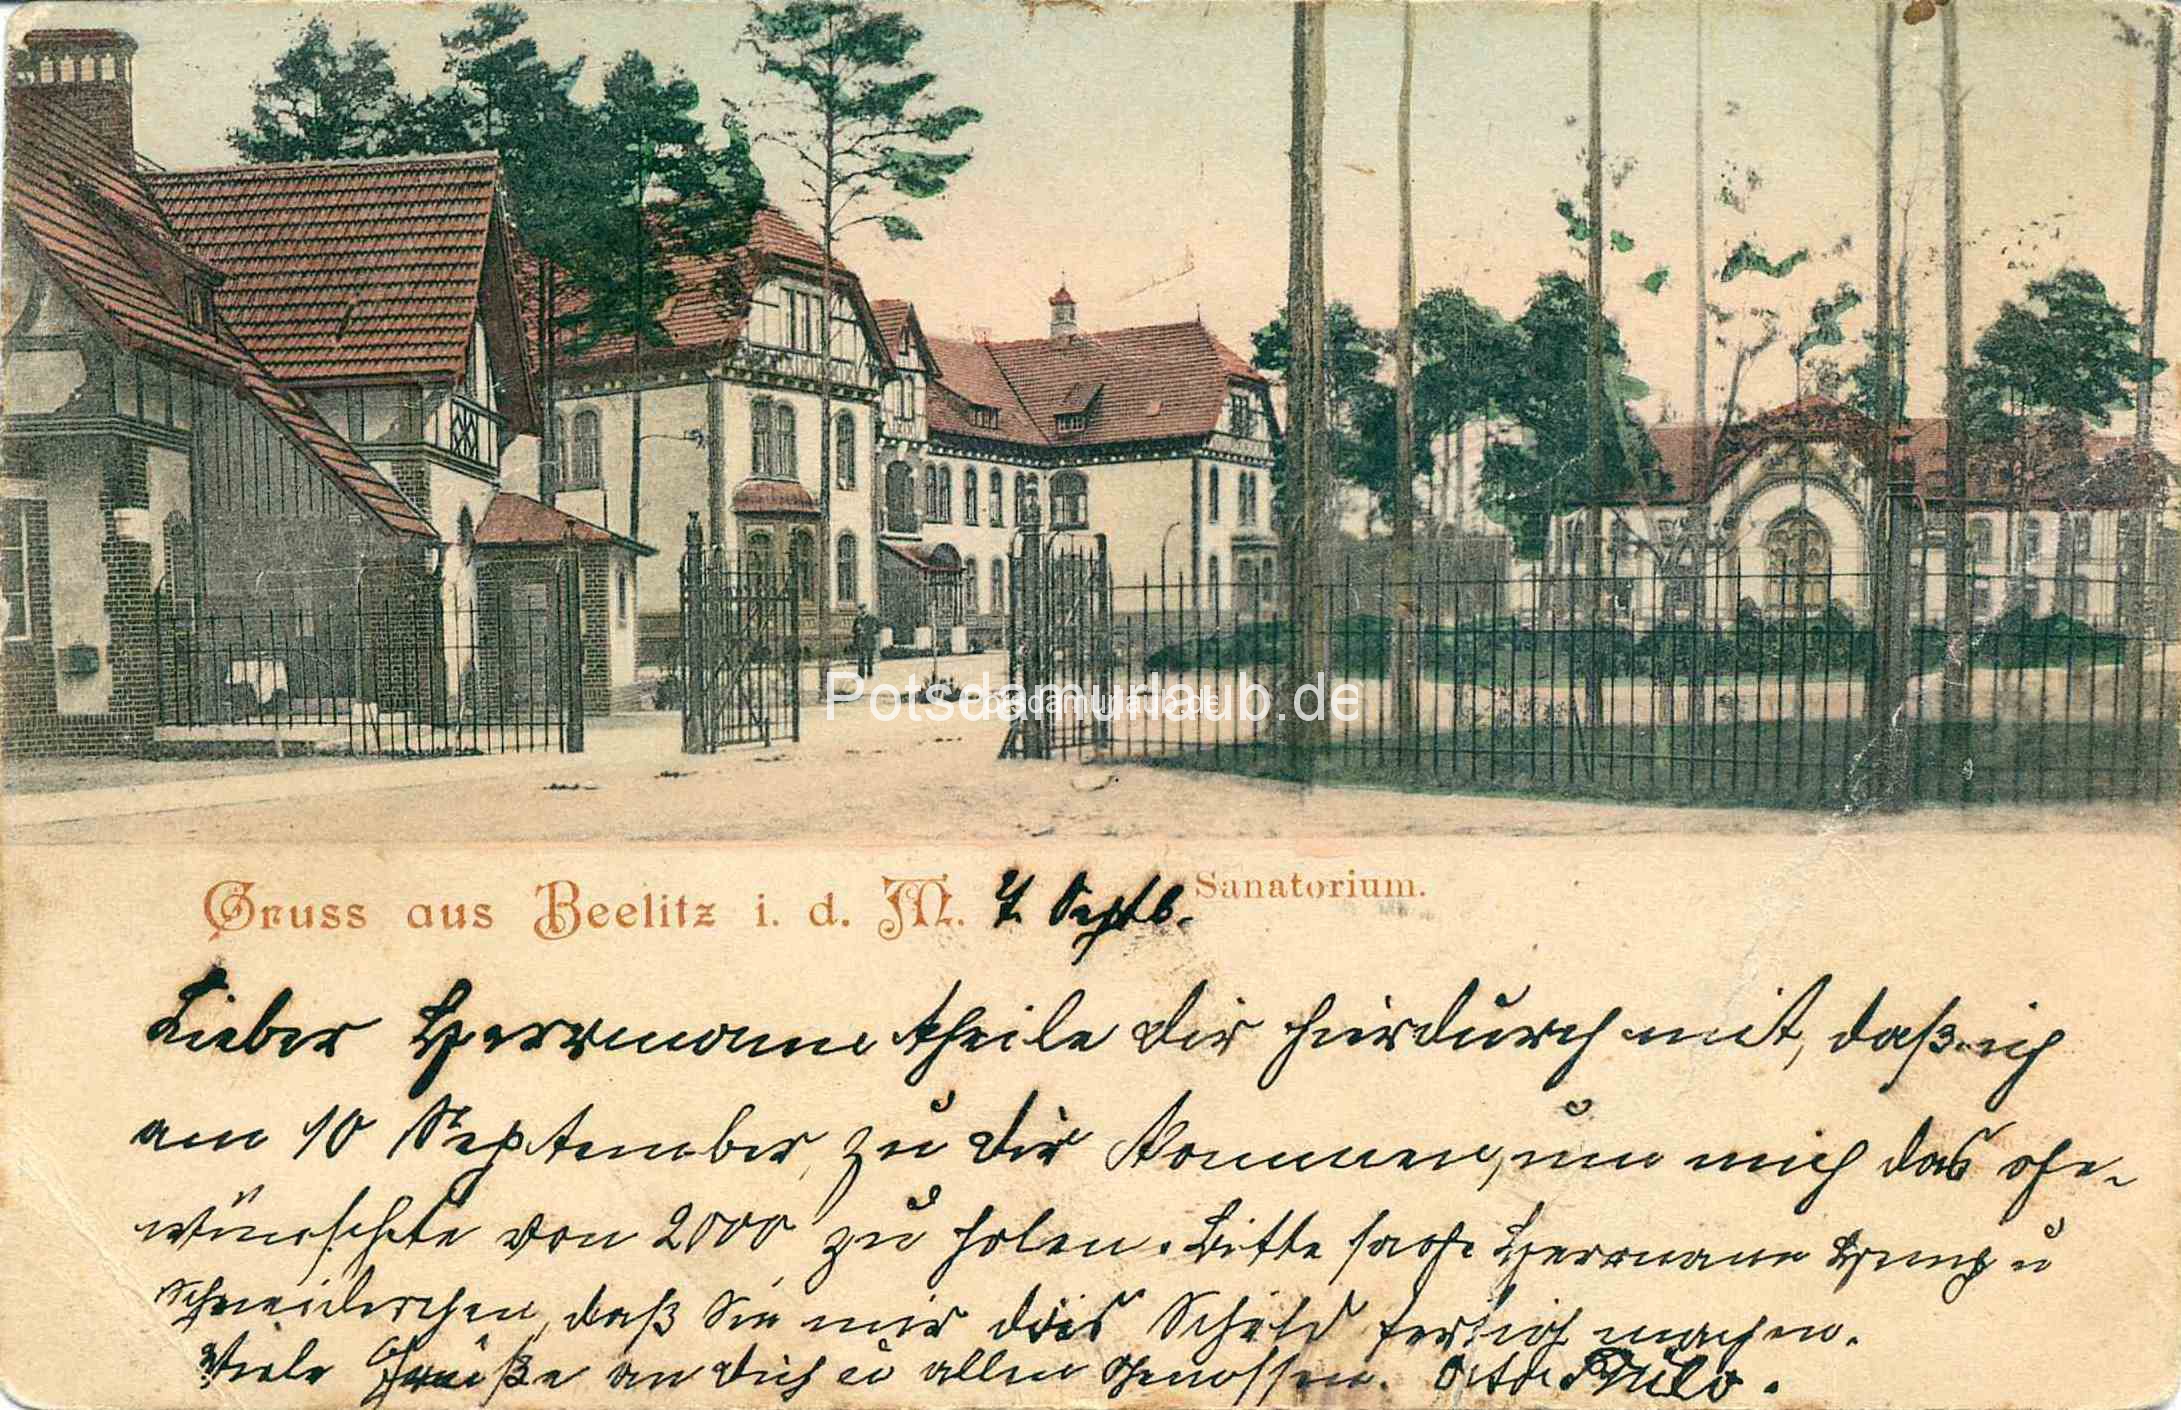 Potsdamurlaub.de
Gruss aus Beelitz i. d. M. 7. Septb. Sanatorium.
Lieber Herrmann theile dir hierdurch mit, daß ich
am 10 September zu dir kommen, um mich das ge-
wünschte von 2000 zu holen. Bitte sage Herrmann u
Schneiderchen, daß Sie mir das Schild fertig machen.
Viele Grüße an dich u allen Genossen. Otto